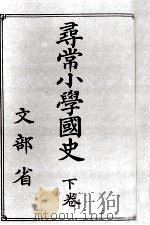 尋常小學國史
下卷
文部省